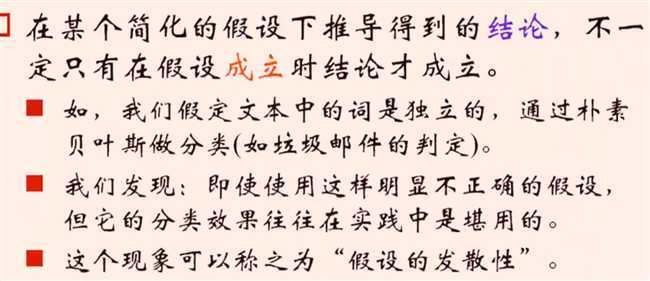 在某个简化的假设下推导得到的结论，不一
定只有在假设成立时结论才成立。
如，我们假定文本中的词是独立的，通过朴素
贝叶斯做分类(如垃圾邮件的判定)。
我们发现：即使使用这样明显不正确的假设，
但它的分类效果往往在实践中是堪用的。
这个现象可以称之为“假设的发散性”。